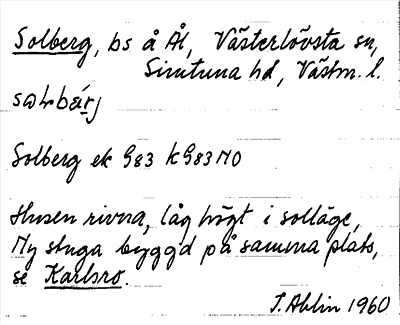 Solberg, bs å Ål, Västerlövsta sn,
Simtuna hd, Västm. l.
Solberg ek G83 KG83NO
Husen rivna, låg högt i solläge,
Ny stuga byggd på samma plats,
se Karlsro.
T. Ahlin 1960